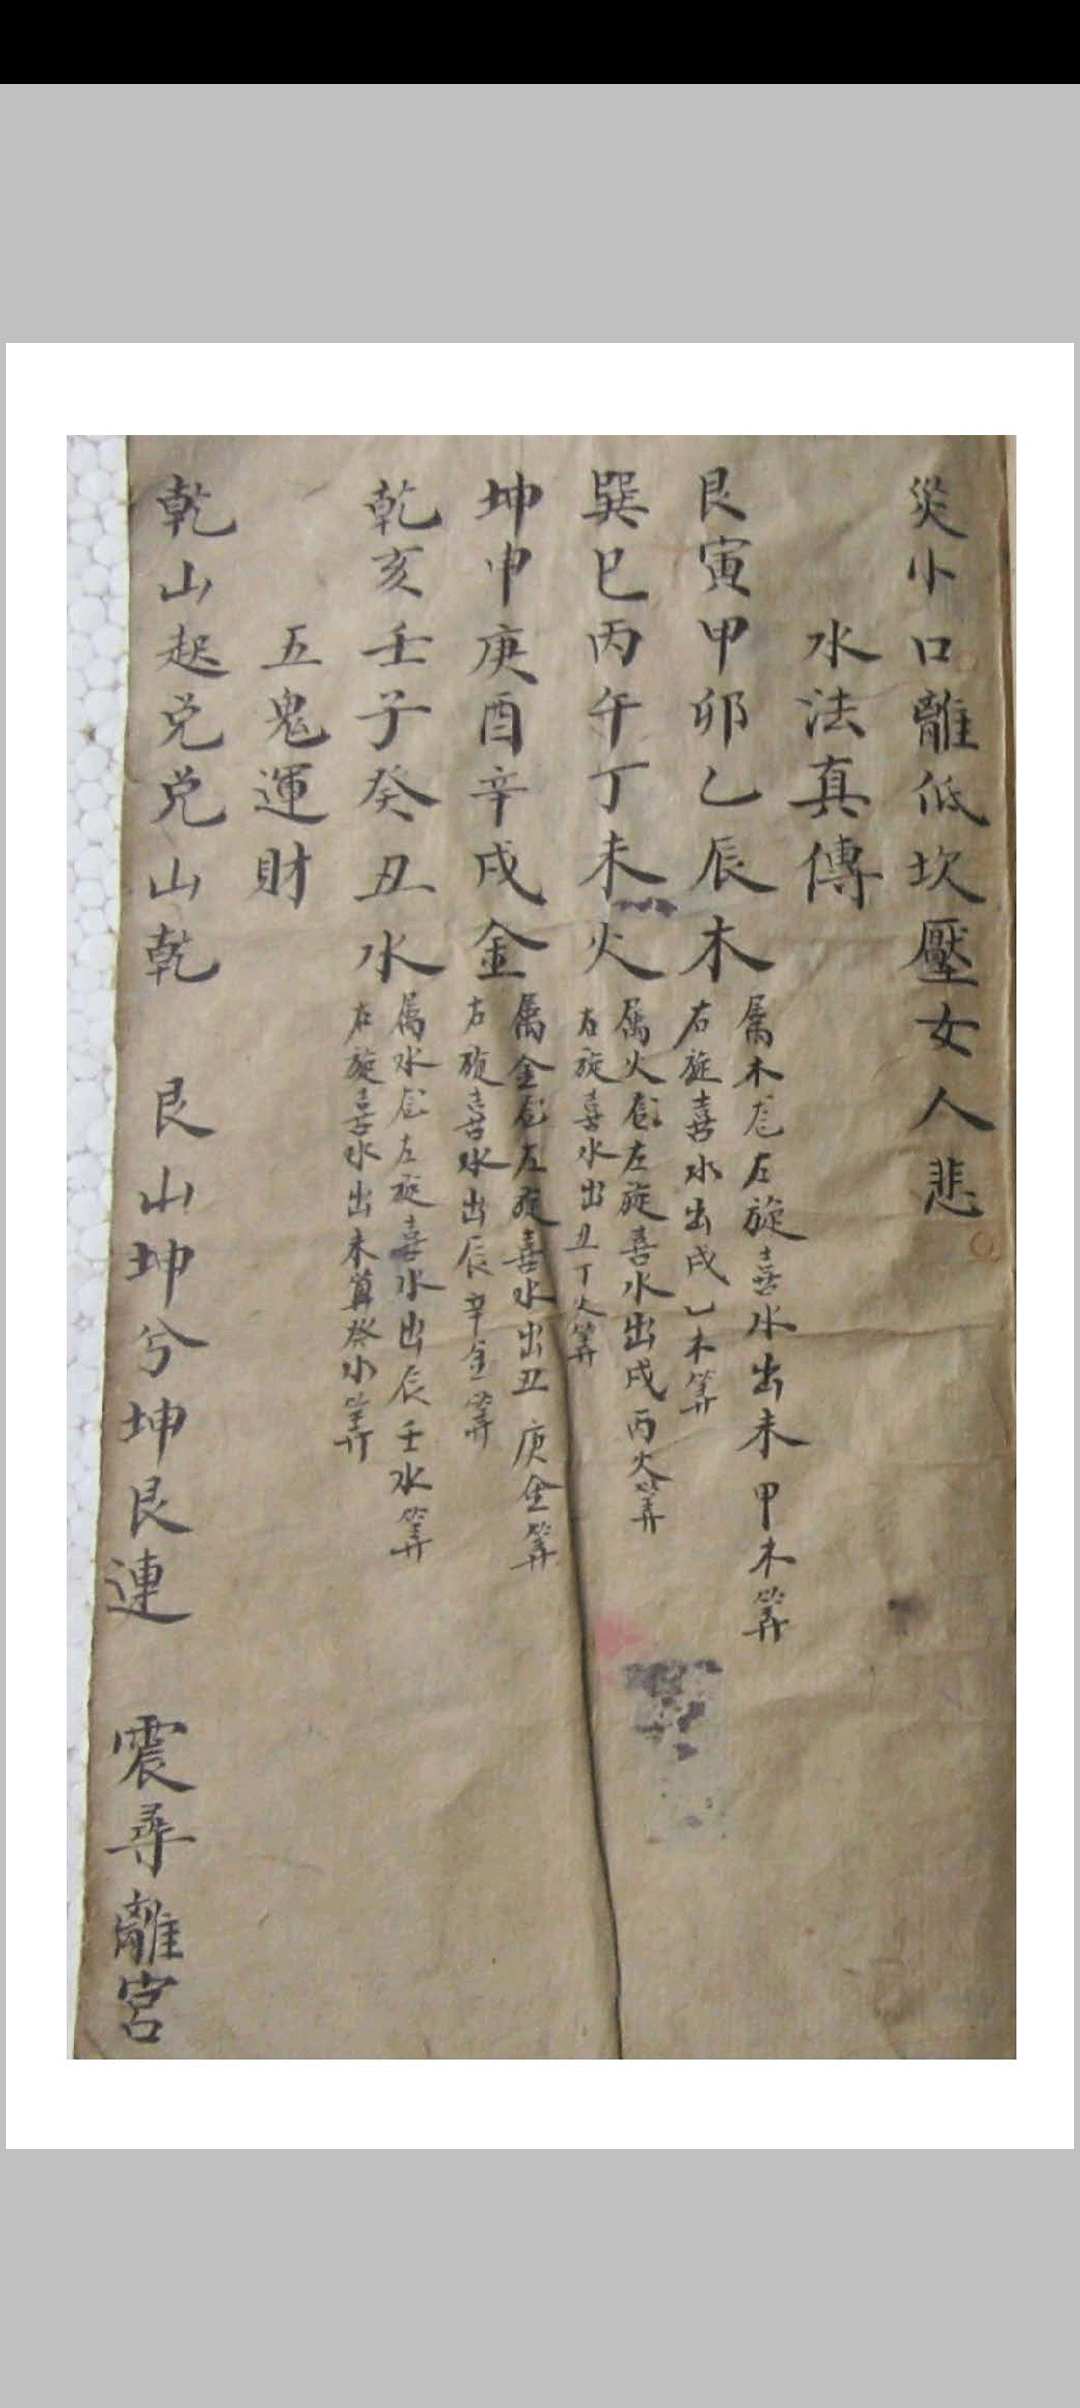 災小口離低坎壓女人悲
水法真傳
艮寅甲卯乙辰木
属木龙左旋喜水出未甲木筭
右旋喜水出戌乙木筭
巽巳丙午丁未火
属火龙左旋喜水出戌丙火筭
右旋喜水出丑丁火筭
坤申庚酉辛戌金
属金龙左旋喜水出丑庚金筭
右旋喜水出辰辛金筭
乾亥壬子癸丑水
属水龙左旋喜水出辰壬水筭
右旋喜水出未算癸水筭
五鬼運財
乾山起兑兑山乾 艮山坤兮坤艮連 震尋離宫